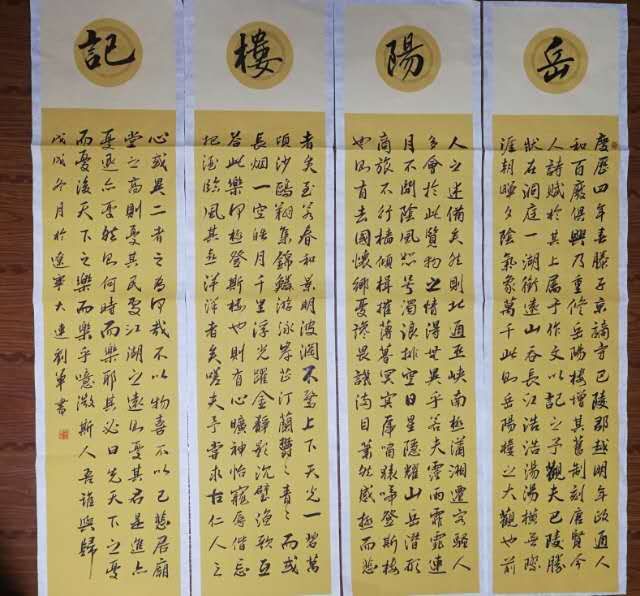 岳
慶曆四年春滕子京謫守巴陵郡越明年政通人
和百廢俱興乃重修岳陽樓增其舊制刻唐賢今
人詩賦於其上属予作文以記之予觀夫巴陵勝
狀在洞庭一湖銜遠山吞長江浩浩湯湯橫無際
涯朝暉夕陰氣象萬千此則岳陽樓之大觀也前
陽
人之述備矣然則北通巫峽南極瀟湘遷客騷人
多會於此覽物之情得無異乎若夫霪雨霏霏連
月不開陰風怒號濁浪排空日星隱耀山岳潛形
商旅不行檣傾楫摧薄暮冥冥虎嘯猿啼登斯樓
也則有去國懷鄉憂讒畏譏滿目蕭然感極而悲
樓
者矣至若春和景明波瀾不驚上下天光一碧萬
頃沙鷗翔集錦鱗游泳岸芷汀蘭鬱々青々而或
長烟一空皓月千里浮光躍金靜影沉璧漁歌互
答此樂何極登斯樓也則有心曠神怡寵辱偕忘
把酒臨風其喜洋洋者矣嗟夫予嘗求古仁人之
記
心或異二者之為何哉不以物喜不以己悲居廟
堂之高則憂其民處江湖之遠則憂其君是進亦
憂退亦憂然則何時而樂耶其必曰先天下之憂
而憂後天下之樂而樂乎噫微斯人吾誰與歸
戊戌冬月於遼寧大連劉軍書